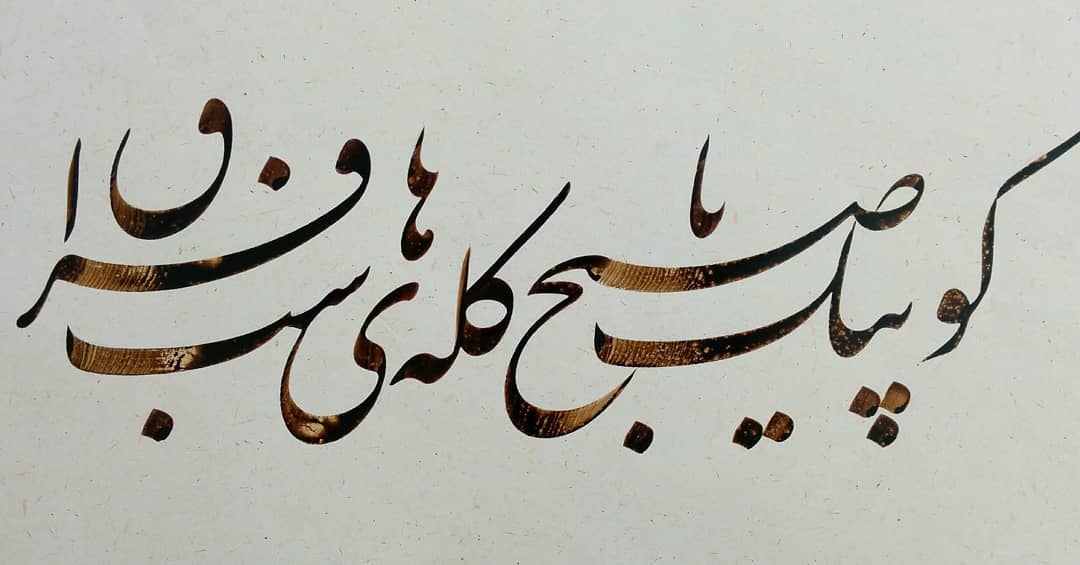 کو پیک صبح تا گله های شب فراق